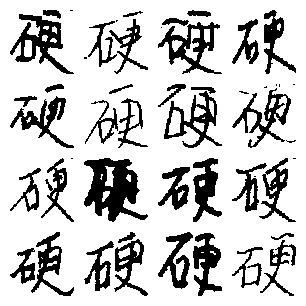 硬硬硬硬
硬硬硬硬
硬硬硬硬
硬硬硬硬